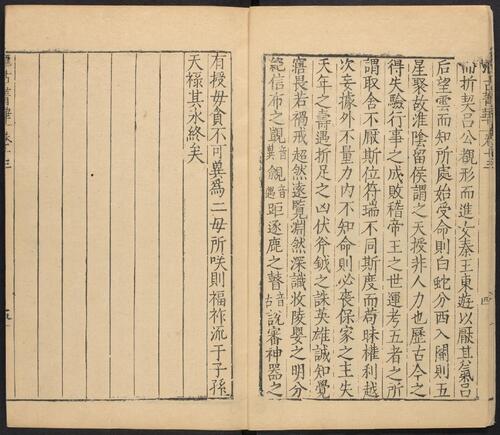 而折契呂公覩形而進女秦王東遊以厭其氣呂
后望雲而知所處始受命則白蛇分西入關則五
星聚故淮陰留侯謂之天授非人力也歷古今之
得失驗行事之成敗稽帝王之世運考五者之所
謂取舍不厭斯位符瑞不同斯度而苟昧權利越
次妄據外不量力内不知命則必喪保家之主失
天年之壽遇折足之凶伏斧鉞之誅英雄誠知覺
寤畏若禍戒超然遠覽淵然深識收陵嬰之明分
絶信布之覬音兾覦音遇距逐鹿之瞽音古說審神器之
有授毋貪不可兾爲二母所咲則福祚流于子孫
天祿其永終矣